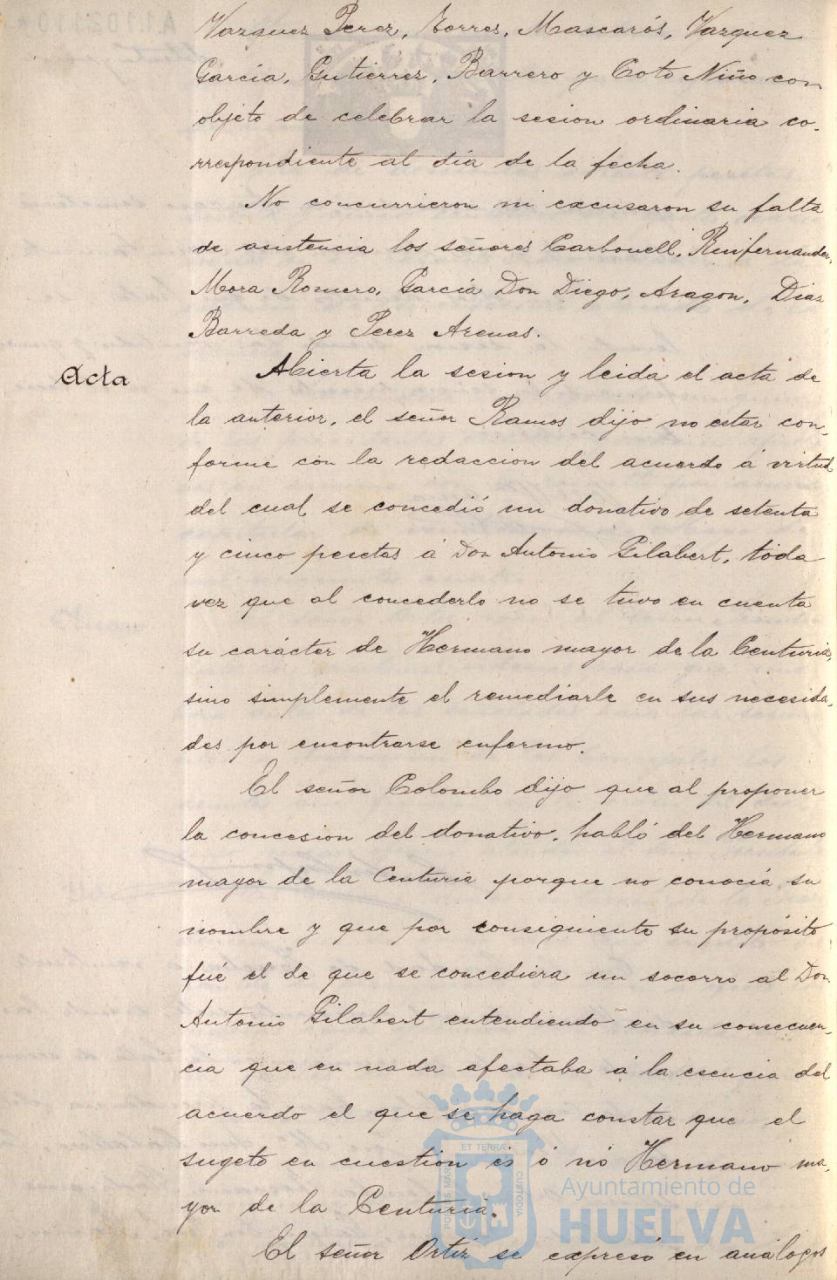 Vazquez Perez, Torres, Mascarós, Vazquez
García, Gutierrez, Barrero y Coto Niño con
objeto de celebrar la sesion ordinaria co-
rrespondiente al día de la fecha.
No concurrieron ni excusaron su falta
de asistencia los señores Carbonell, Ruifernandez,
Mora Romero, García Don Diego, Aragon, Diaz
Barreda y Perez Arenas.
Acta
Abierta la sesion y leida el acta de
la anterior, el señor Ramos dijo no estar con-
forme con la redaccion del acuerdo á virtud
del cual se concedió un donativo de setenta
y cinco pesetas á Don Antonio Gilabert, toda
vez que al concederlo no se tuvo en cuenta
su carácter de Hermano mayor de la Centuria,
sino simplemente el remediarle en sus necesida-
des por encontrarse enfermo.
El señor Colombo dijo que al proponer
la concesion del donativo, habló del Hermano
mayor de la Centuria porque no conocía su
nombre y que por consiguiente su propósito
fué el de que se concediera un socorro al Don
Antonio Gilabert entendiendo en su consecuen-
cia que en nada afectaba á la esencia del
acuerdo el que se haga constar que el
sugeto en cuestion és ó nó Hermano ma-
yor de la Centuria.
El señor Ortiz se expresó en análogos
ET TERRA
CUSTODIA
Ayuntamiento de
HUELVA